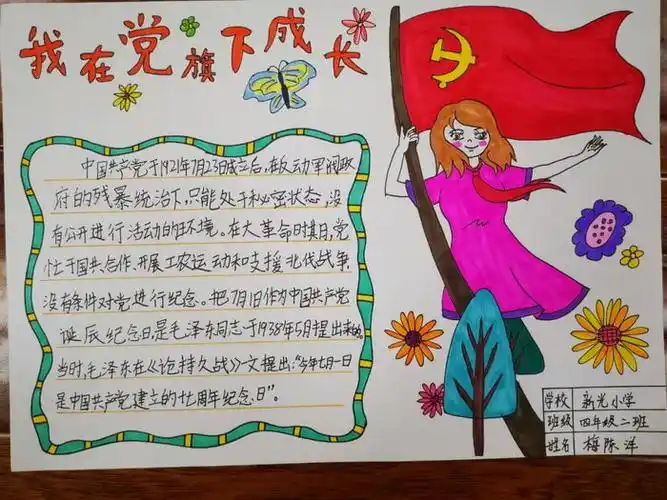 我在党旗下成长
中国共产党于1921年7月23日成立后,在反动军阀政
府的残暴统治下,只能处于秘密状态,没
有公开进行活动的环境。在大革命时期,党
忙于国共合作、开展工农运动和支援北伐战争,
没有条件对党进行纪念。把7月1日作为中国共产党
诞辰纪念日,是毛泽东同志于1938年5月提出来的。
当时,毛泽东在《论持久战》一文提出:“今年七月一日
是中国共产党建立的廿周年纪念日”。
学校 新光小学
班级 四年级二班
姓名 梅陈洋